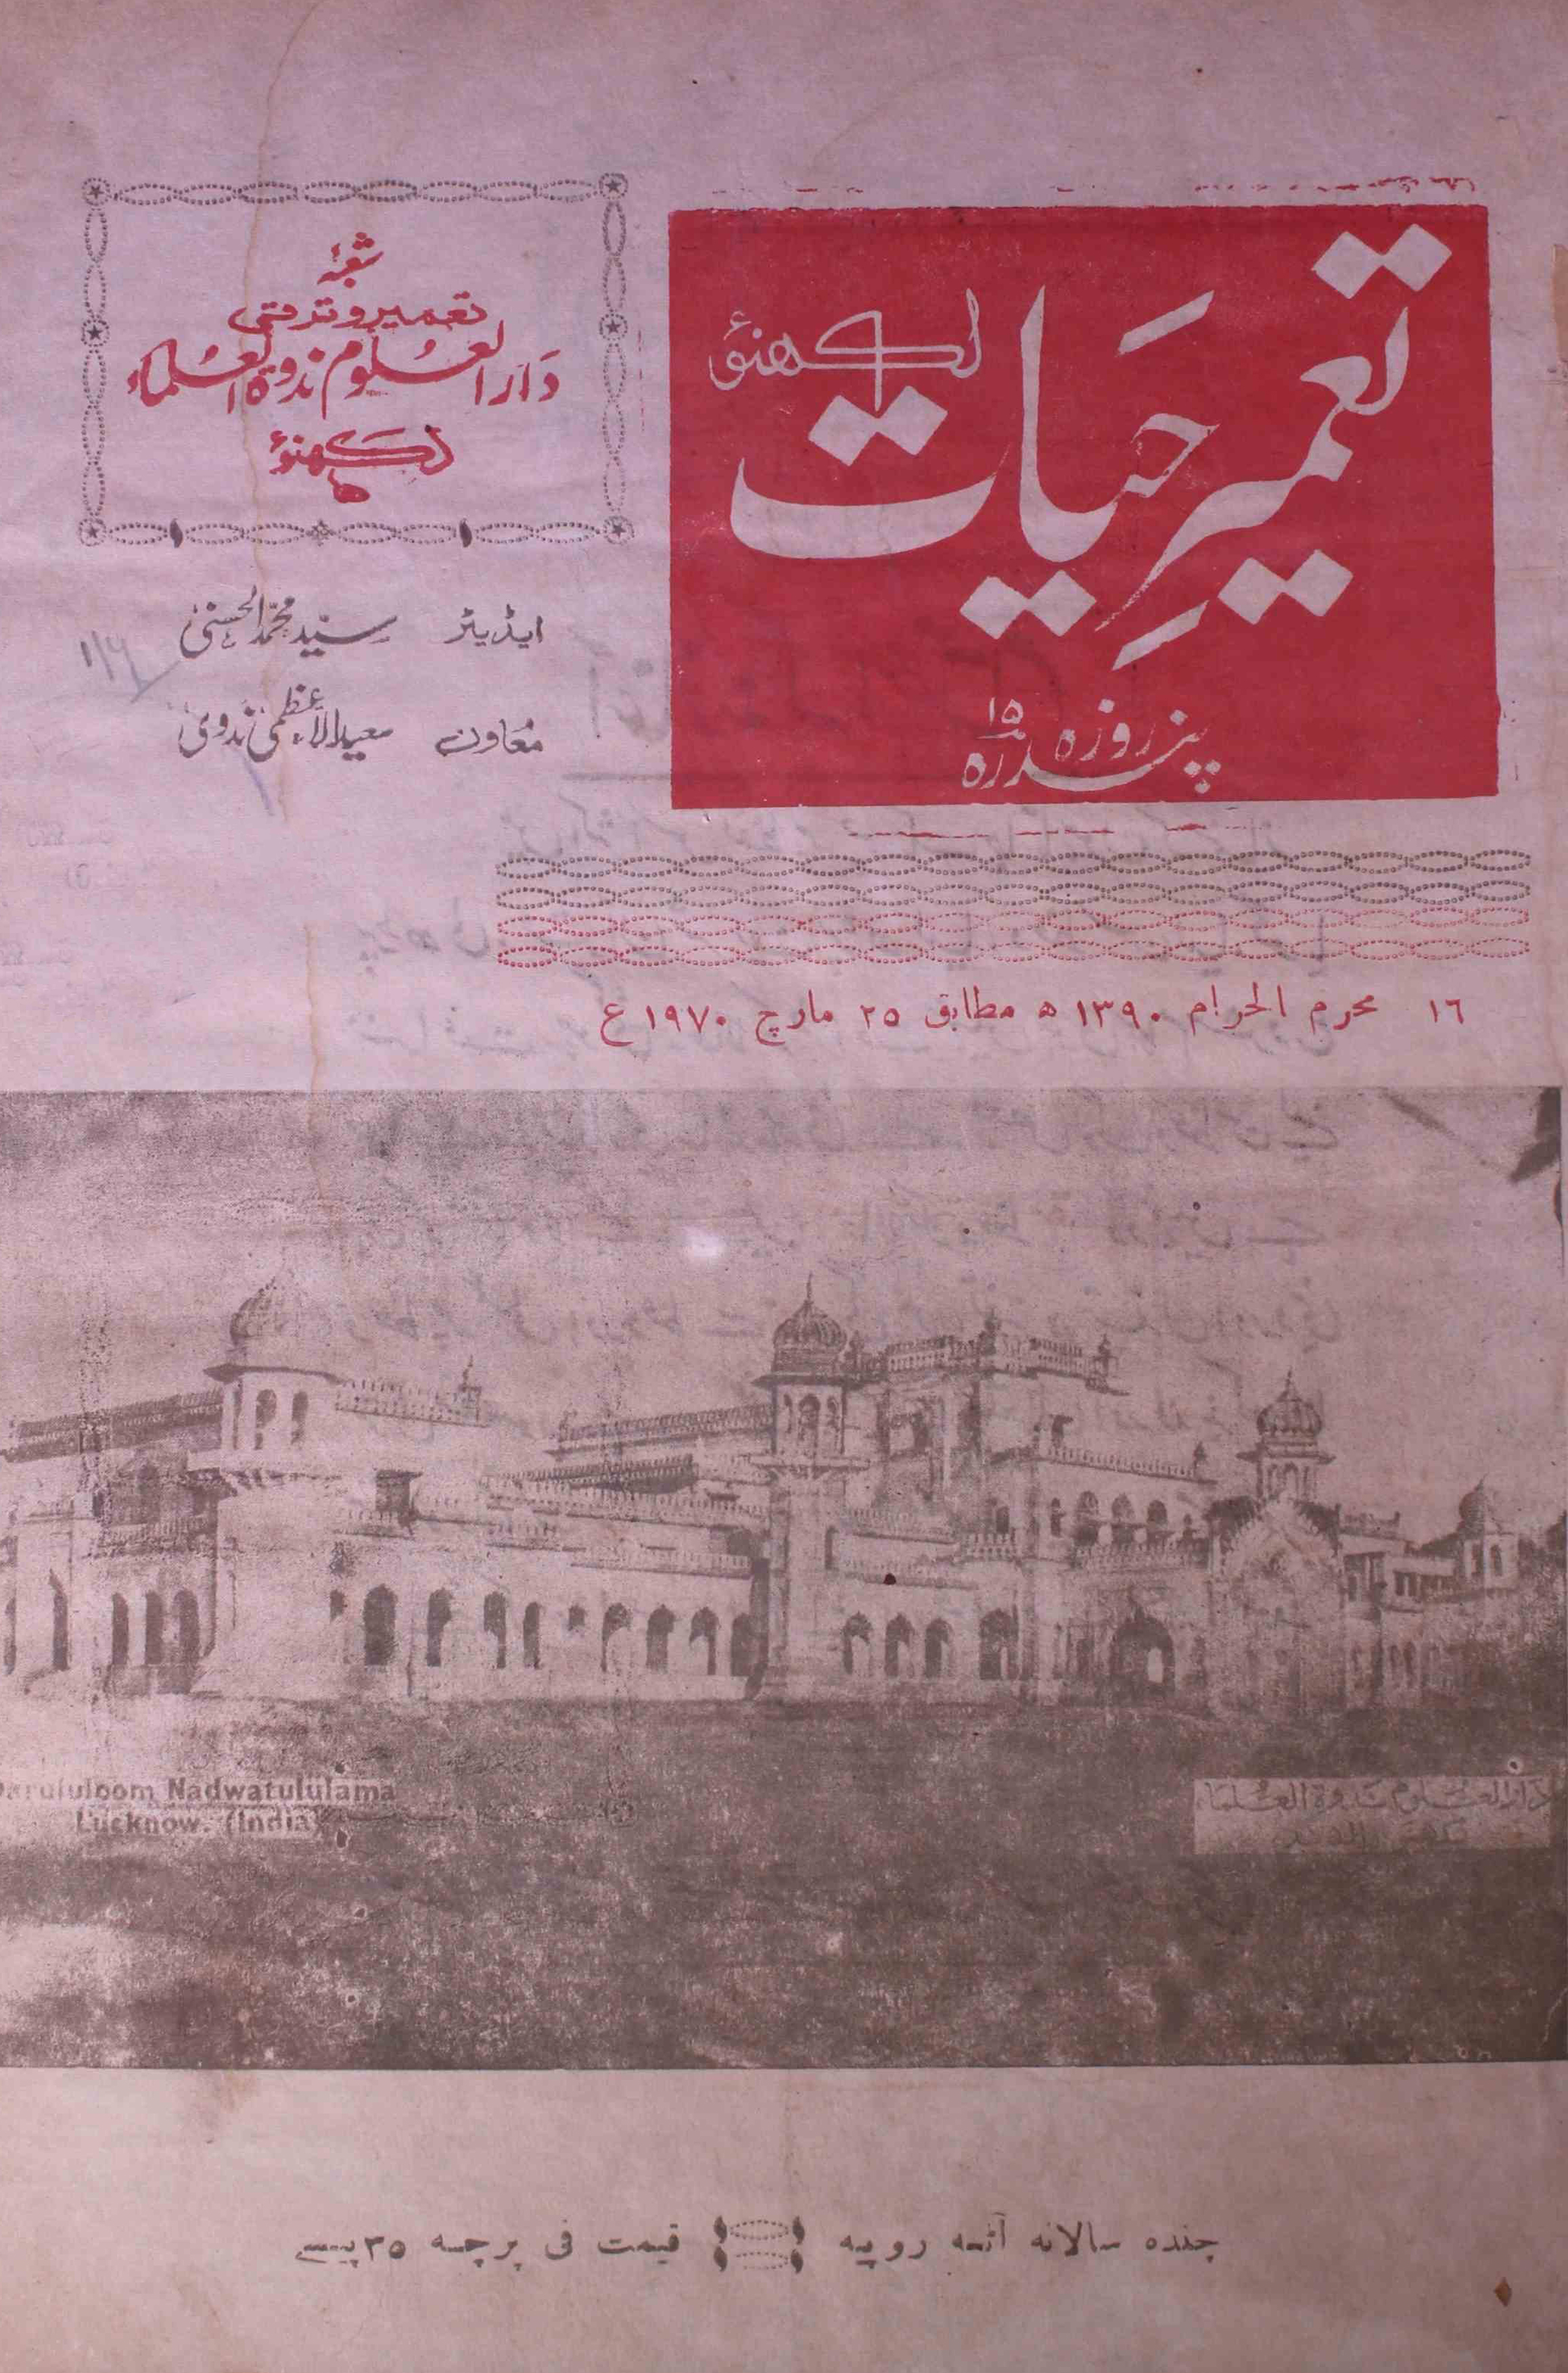 تعمیرِ حیات
لکھنؤ
پندرہ روزہ
۱۵
شعبۂ
تعمیر و ترقی
دارالعلوم ندوۃ العلماء
لکھنؤ
ایڈیٹر سید محمد الحسنی
معاون سعید الاعظمی ندوی
۱۶ محرم الحرام ۱۳۹۰ ھ مطابق ۲۵ مارچ ۱۹۷۰ ع
Darululoom Nadwatululama
Lucknow. (India)
دارالعلوم ندوۃ العلماء
چندہ سالانہ آٹھ روپیہ
قیمت فی پرچہ ۳۵ پیسے